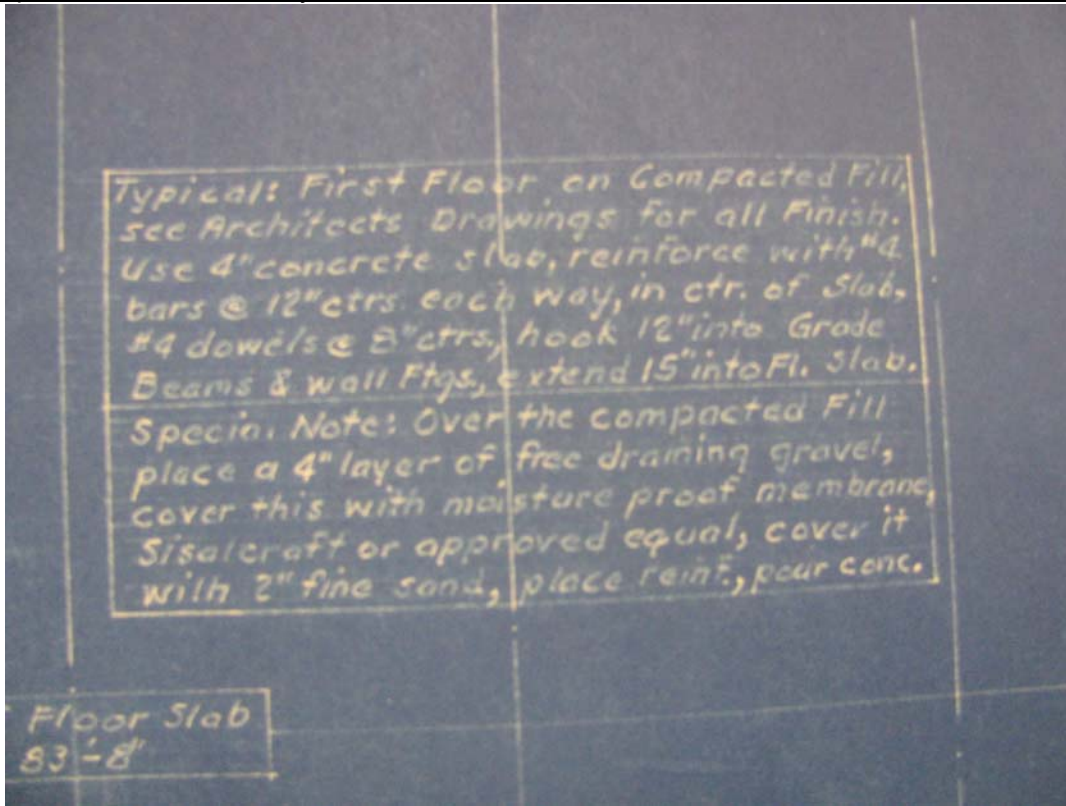 Typical: First Floor on Compacted Fill,
see Architects Drawings for all Finish.
Use 4" concrete slab, reinforce with #4
bars @ 12" ctrs. each way, in ctr. of Slab,
#4 dowels @ 8" ctrs, hook 12" into Grade
Beams & wall Ftgs, extend 15" into Fl. Slab.
Special Note: Over the compacted Fill
place a 4" layer of free draining gravel,
cover this with moisture proof membrane,
Sisalcraft or approved equal, cover it
with 2" fine sand, place reinf., pour conc.
Floor Slab
83'-8"